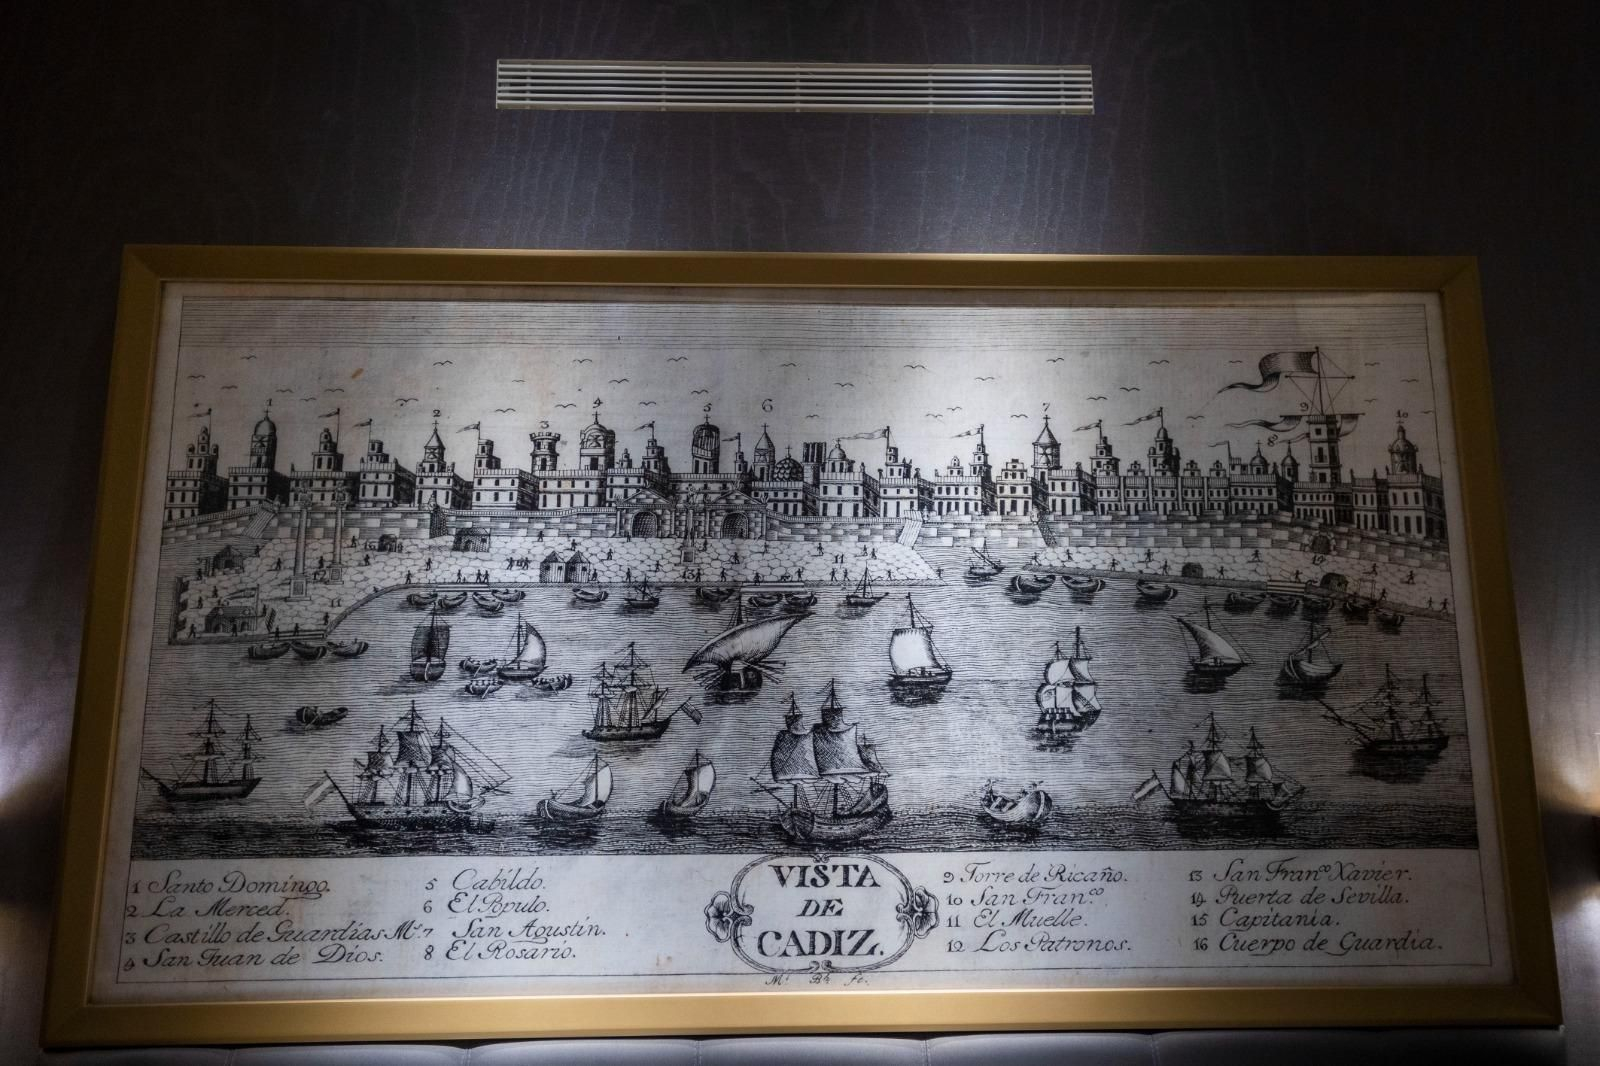 1 Santo Domingo.
2 La Merced.
3 Castillo de Guardias M.ˢ
4 San Juan de Dios.
5 Cabildo.
6 El Populo.
7 San Agustin.
8 El Rosario.
VISTA
DE
CADIZ.
9 Torre de Ricaño.
10 San Fran.ᶜᵒ
11 El Muelle.
12 Los Patronos.
13 San Fran.ᶜᵒ Xavier.
14 Puerta de Sevilla.
15 Capitania.
16 Cuerpo de Guardia.